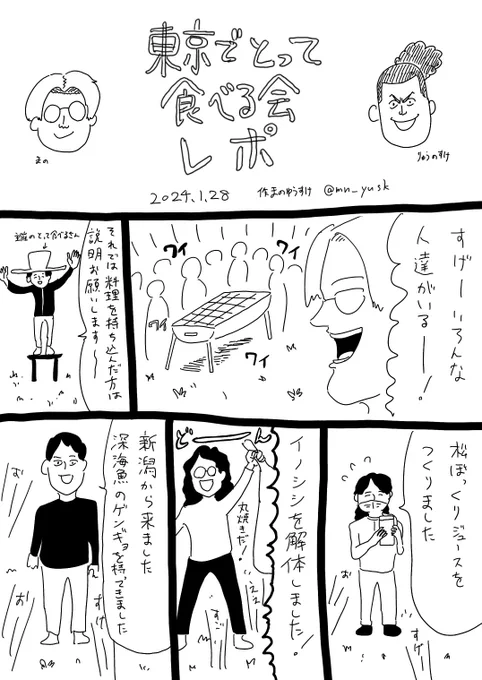 東京でとって
食べる会
レポ
まの
りゅうのすけ
2024.1.28
作まのゆうすけ @mn_yusk
すげー いろんな
人達がいるー!
ワイ
ワイ
ワイ
ワイ
それでは料理を持ち込んだ方は
説明お願いします〜
松ぼっくりジュースを
つくりました
お
お
すげー
イノシシを解体しました!
どーん
丸焼きだ!
ええ
すご
新潟から来ました
深海魚のゲンギョを持てきました
お
お
すげ